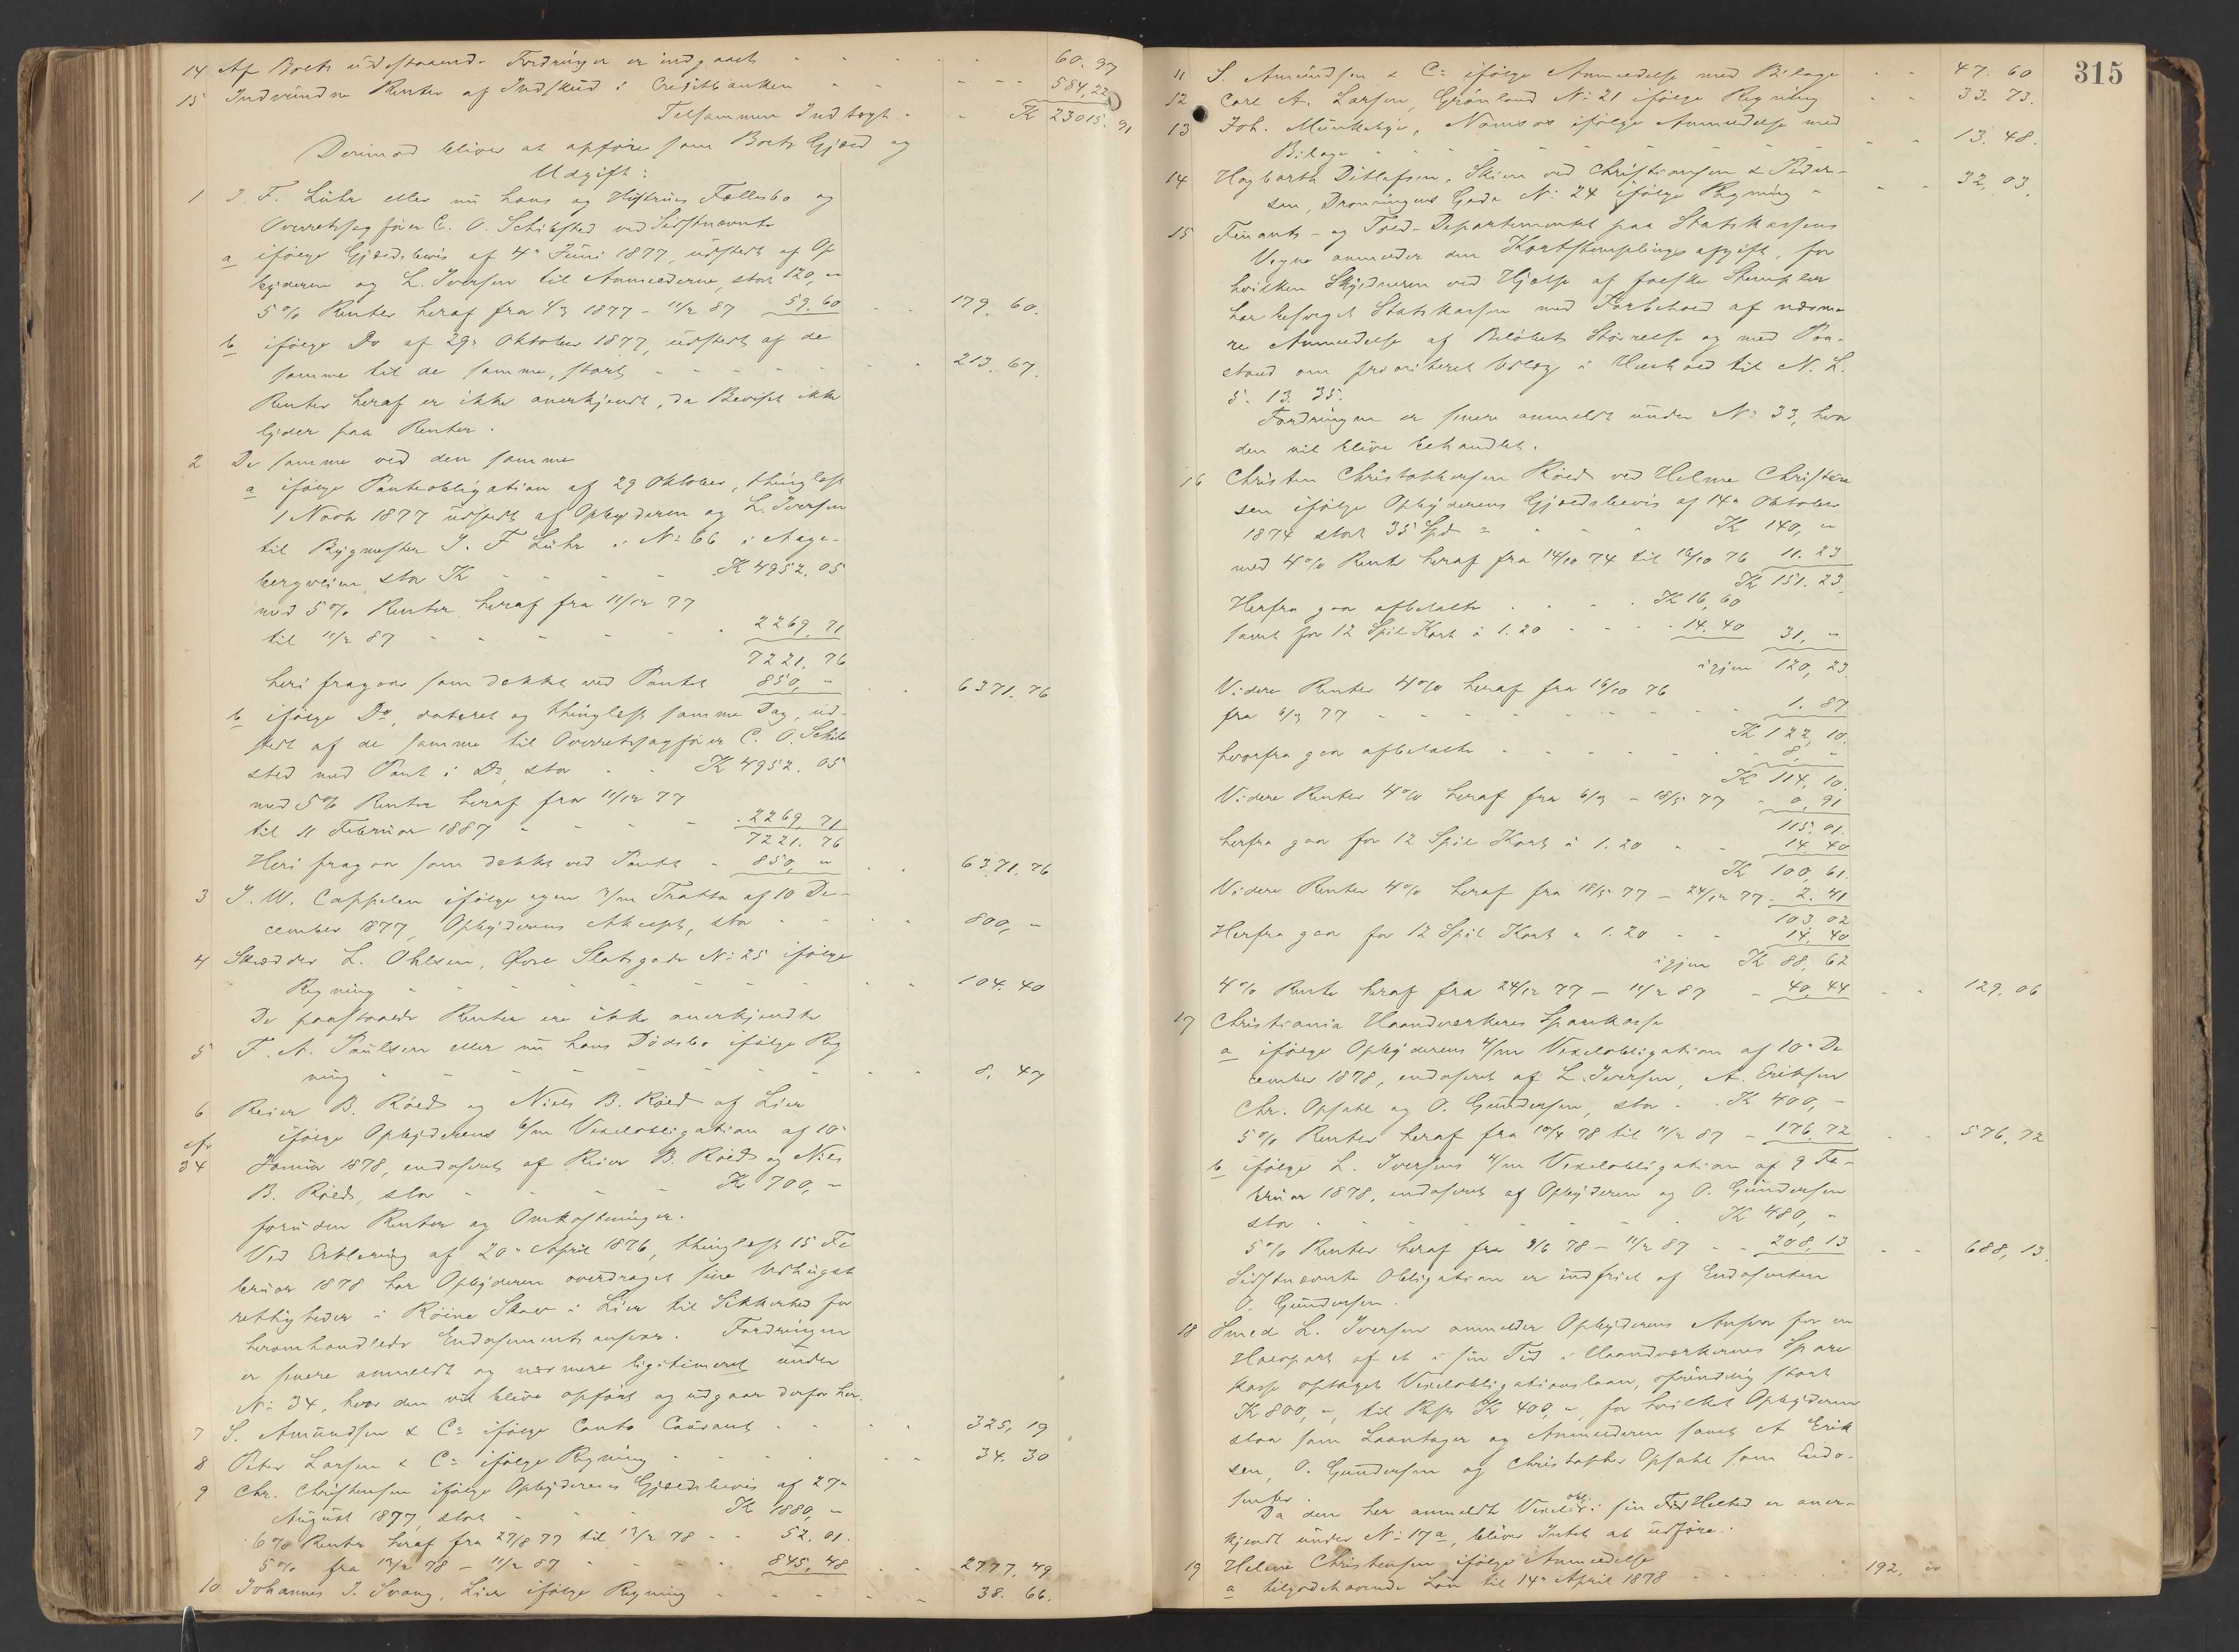 14 Af Boets udestaaende Fordringer er indgaaet - - - - - 60. 97
15 Indvundne Renter af Indskud i Creditbanken - - - - 584,22
Tilsammen Indtægt - - K 23015. 91
Derimod bliver at opføre som Boets Gjæld og
Udgift:
1 J. F. Lühr eller nu hans og Hustrues Fællesbo og
Overretssagfører C. O. Schibsted ved Sidstnævnte
a ifølge Gjældsbevis af 4de Juni 1877, udstedt af Op
byderen og L. Iversen til Anmelderne, stort 120, "
5 % Renter heraf fra 4/3 1877 - 11/2 87 59. 60 - - 179. 60.
b ifølge Do af 29de Oktober 1877, udstedt af de
samme til de samme, stort - - - - - 213. 67.
Renter heraf er ikke anerkjendt, da Beviset ikke
lyder paa Renter.
2 De samme ved den samme
a ifølge Panteobligation af 29 Oktober, thinglæst
1 Novbr 1877 udstedt af Opbyderen og L. Iversen
til Bygmester J. F Lühr i No 66 i Aage-
bergveien, stor K - - - - K 4952. 05
med 5 % Renter heraf fra 11/12 77
til 11/2 87 - - - - - - 2269. 71
7221. 76
heri fragaar som dækket ved Pantet 850, " - - 6371. 76
b ifølge Do, dateret og thinglæst samme Dag, ud-
stedt af de samme til Overretssagfører C. O. Schib
sted med Pant i Do, stor - - K 4952. 05
med 5 % Renter heraf fra 11/12 77
til 11 Februar 1887 - - - - 2269, 71
7221. 76
Heri fragaar som dækket ved Pantet - 850, " - - 6371. 76
3 J. W. Cappelen ifølge egen 3/m Tratta af 10 De-
cember 1877, Opbyderens Akcept, stor - - - - 800, -
4 Skrædder L. Ohlsen, Øvre Slotsgade No 25 ifølge
Regning - - - - - - - - - 104. 40
De paastaaede Renter ere ikke anerkjendte
5 F. A. Paulsen eller nu hans Dødsbo ifølge Reg
ning - - - - - - - - - 8. 47
6 Reier B. Röed og Niels B. Röed af Lier
cfr ifølge Opbyderens 6/m Vexelobligation af 10de
34 Januar 1878, endosseret af Reier B. Röed og Niels
B. Röed, stor - - - - K 700, -
foruden Renter og Omkostninger.
Ved Erklæring af 20de April 1876, thinglæst 15 Fe
bruar 1878 har Opbyderen overdraget sine Udhugst
rettigheder i Röine Skov i Lier til Sikkerhed for
heromhandlede Endossements ansvar. Fordringen
er senere anmeldt og nærmere ligitimeret under
No 34, hvor den vil blive opført og udgaar derfor her.
7 S. Amundsen & Co ifølge Conto Courant - - - - 325, 19
8 Peter Larsen & Co ifølge Regning - - - - - 34. 30
9 Chr. Christensen ifølge Opbyderens Gjældsbevis af 27de
August 1877, stort - - - K 1880, "
6 % Rente heraf fra 27/8 77 til 13/2 78 - - 52. 01.
5 % fra 13/2 78 - 11/2 87 - - - - 845, 48 - - 2777, 49
10 Johannes J. Svang, Lier ifølge Regning - - - - - 38. 66.
315
11 S. Amundsen & Co ifølge Anmeldelse med Bilage - - 47. 60
12 Carl A. Larsen, Grønland No 21 ifølge Regning - - 33. 73.
13 Joh. Munkebye, Namsos ifølge Anmeldelse med
Bilage - - - - - - - - - - 13. 48.
14 Hagbarth Ditlefsen, Skien ved Christiansen & Peder-
sen, Dronningens Gade No 24 ifølge Regning - - - 32, 03.
15 Finants- og Told-Departementet paa Statskassens
Vegne anmelder den Kortstemplingsafgift, for
hvilken Skyldneren ved Hjælp af falske Stempler
har besveget Statskassen med Forbehold af nærme
re Anmeldelse af Beløbets Størrelse og med Paa-
stand om prioriteret Udlæg i Henhold til N. L.
5. 13. 35.
Fordringen er senere anmeldt under No 33, hvor
den vil blive behandlet.
16 Christen Christophersen Röed ved Helme Christen
sen ifølge Opbyderens Gjældsbevis af 14de Oktober
1874 stort 35 Spd = - - - K 140, "
med 4 % Rente heraf fra 14/10 74 til 16/10 76 11. 23
K 151. 23.
Herfra gaar afbetalte - - - - K 16, 60
samt for 12 Spil Kort à 1. 20 - - - - 14. 40 31, "
igjen 120, 23.
Videre Renter 4 % heraf fra 16/10 76
fra 6/3 77 - - - - - - - - 1. 87
K 122, 10.
hvorfra gaar afbetalte - - - - - - 8, "
K 114, 10.
Videre Renter 4 % heraf fra 6/3 - 18/5 77 - 0, 91
115, 01.
herfra gaar for 12 Spil Kort à 1. 20 - - 14, 40
K 100, 61.
Videre Renter 4 % heraf fra 18/5 77 - 24/12 77 - 2. 41
103, 02
Herfra gaar for 12 Spil Kort à 1. 20 - - 14, 40
igjen K 88, 62
4 % Rente heraf fra 24/12 77 - 11/2 87 - 40, 44 - - 129. 06
17 Christiania Haandværkeres Sparekasse
a ifølge Opbyderens 4/m Vexelobligation af 10de De
cember 1878, endosseret af L. Iversen, A. Eriksen
Chr. Opsahl og O. Gundersen, stor - - K 400, -
5 % Renter heraf fra 10/4 78 til 11/2 87 - 176. 72 - - 576, 72
b ifølge L. Iversens 4/m Vexelobligation af 9 Fe-
bruar 1878, endosseret af Opbyderen og O. Gundersen
stor - - - - - - - K 480, "
5 % Renter heraf fra 9/6 78 - 11/2 87 - - 208, 13 - - 688, 13.
Sidstnævnte Obligation er indfriet af Endossenten
O. Gundersen.
18 Smed L. Iversen anmelder Opbyderens Ansvar for en
Halvpart af et i sin Tid i Haandværkernes Spare
kasse optaget Vexelobligationslaan, oprindelig stort
K 800, -, til Rest K 400, -, for hvilket Opbyderen
staar som Laantager og Anmelderen samt A Erik
sen, O. Gundersen og Christopher Opsahl som Endo-
senter.
Da den her anmeldte Vexelobl. i sin Helhed er aner-
kjendt under No 17a, bliver Intet at udføre.
19 Helene Christensen ifølge Anmeldelse
a tilgodehavende Løn til 14de April 1878 - - - - 192, "